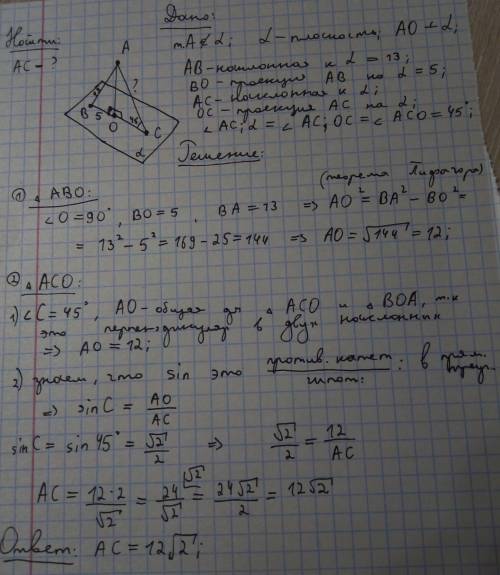 Дано:
Найти:
AC - ?
т.A ∉ α; α - плоскость; AO ⊥ α;
AB - наклонная к α = 13;
BO - проекция AB на α = 5;
AC - наклонная к α;
OC - проекция AC на α;
∠AC; α = ∠AC; OC = ∠ACO = 45°;
A
13
?
B 5
O
45
C
α
Решение:
① △ ABO:
(теорема Пифагора)
∠O = 90°, BO = 5, BA = 13 ⇒ AO² = BA² - BO² =
= 13² - 5² = 169 - 25 = 144 ⇒ AO = √144 = 12;
② △ ACO:
1) ∠C = 45°, AO - общая для △ ACO и △ BOA, т.к
это перпендикуляр в двух наклонных
⇒ AO = 12;
2) знаем, что sin это против. катет / гипот. : в прям. треуг.
⇒ sin C = AO / AC
sin C = sin 45° = √2 / 2 ⇒ √2 / 2 = 12 / AC
AC = 12·2 / √2 = 24 / √2 (√2 = 24√2 / 2 = 12√2
Ответ: AC = 12√2;